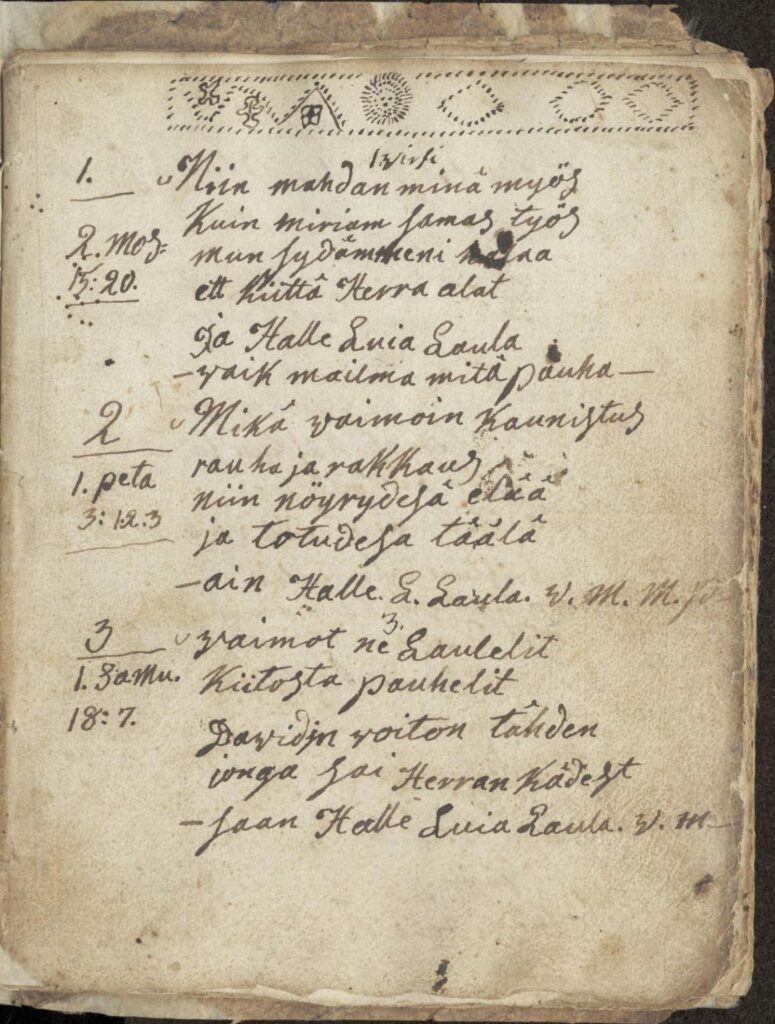 1 virsi
1. Niin mahdan minä myös
Kuin miriam samas työs
2. Mos: mun sydämmeni
15: 20. ett kiittä Herra alat
Ja Halle Luia Laula
- waik mailma mitä pauha -
2 Mikä waimoin kaunistus
1. peta rauha ja rakkaus
3: 1.2.3 niin nöyrydesä elää
ja totudesa täälä
- ain Halle. L. Laula. w. M. M.
3 waimot ne 3. Laulelit
1. Samu. Kiitosta pauhelit
18: 7.
Dawidin woiton tähden
jonga sai Herran kädest
- saan Halle Luia Laula. w. m